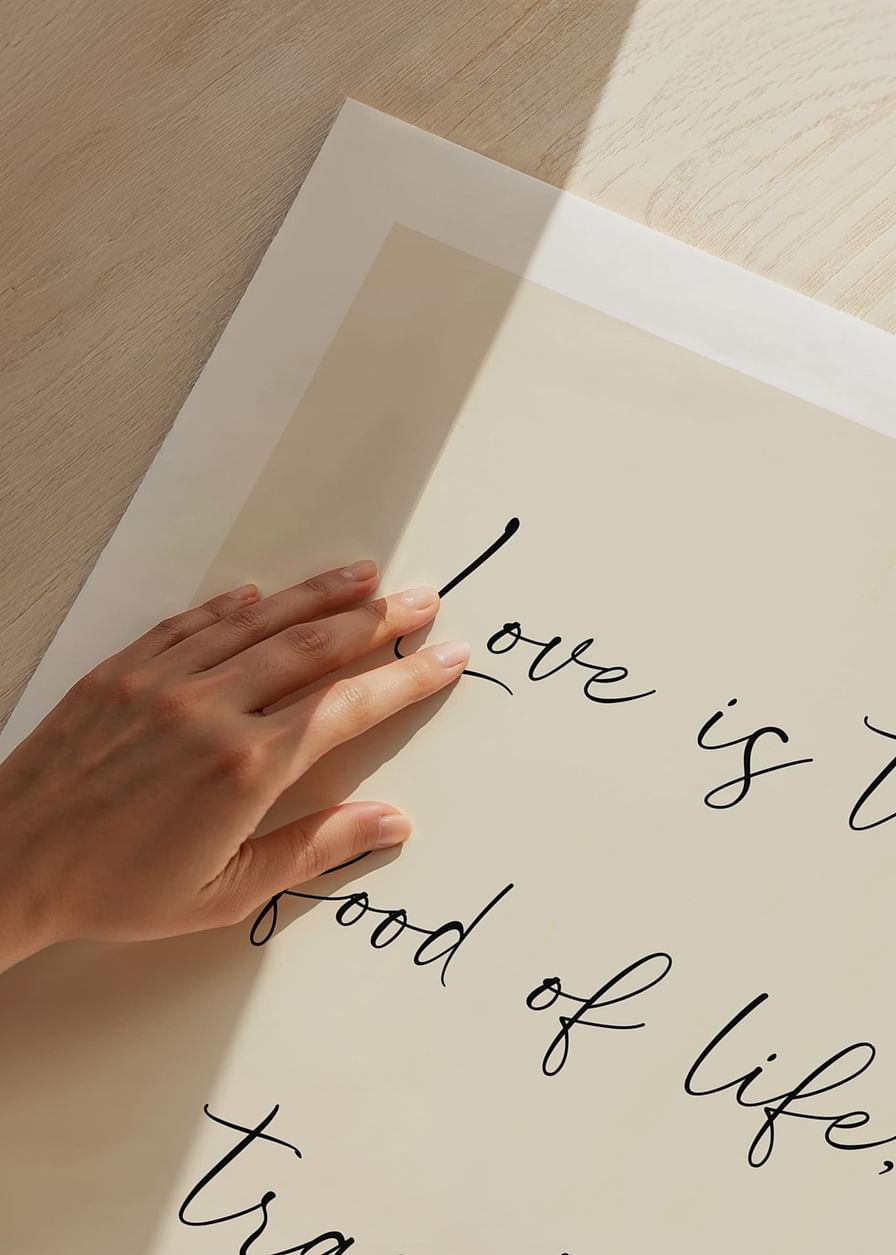 Love is
food of life,